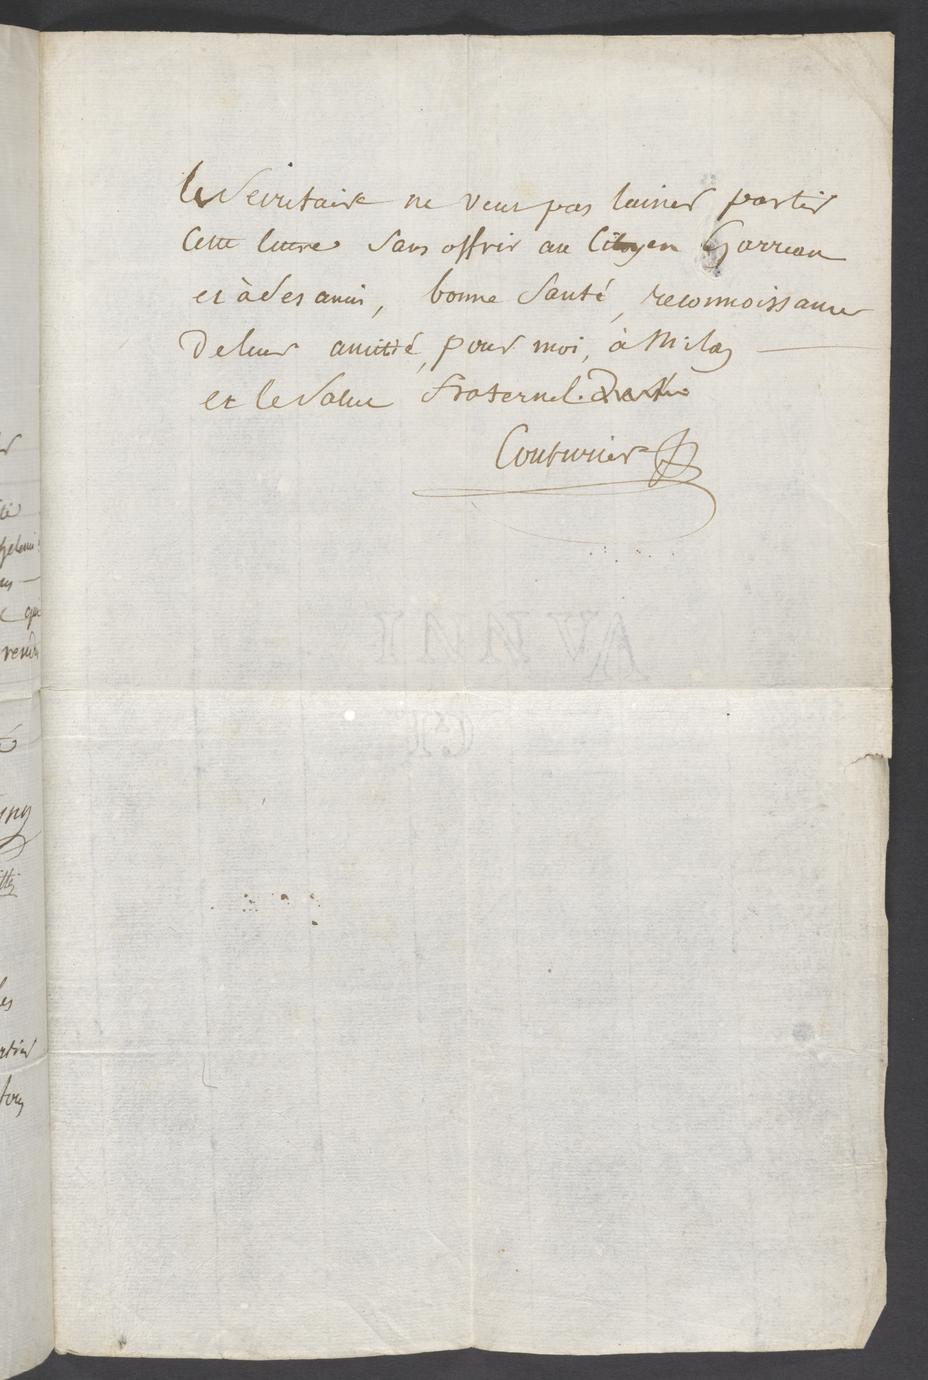 le Secretaire ne veut pas laisser partir
Cette lettre Sans offrir au Citoyen Garreau
et à Ses amis, bonne Santé, reconnoissance
De leur amitié, pour moi, à Milan
et le Salut fraternel.
Couturier